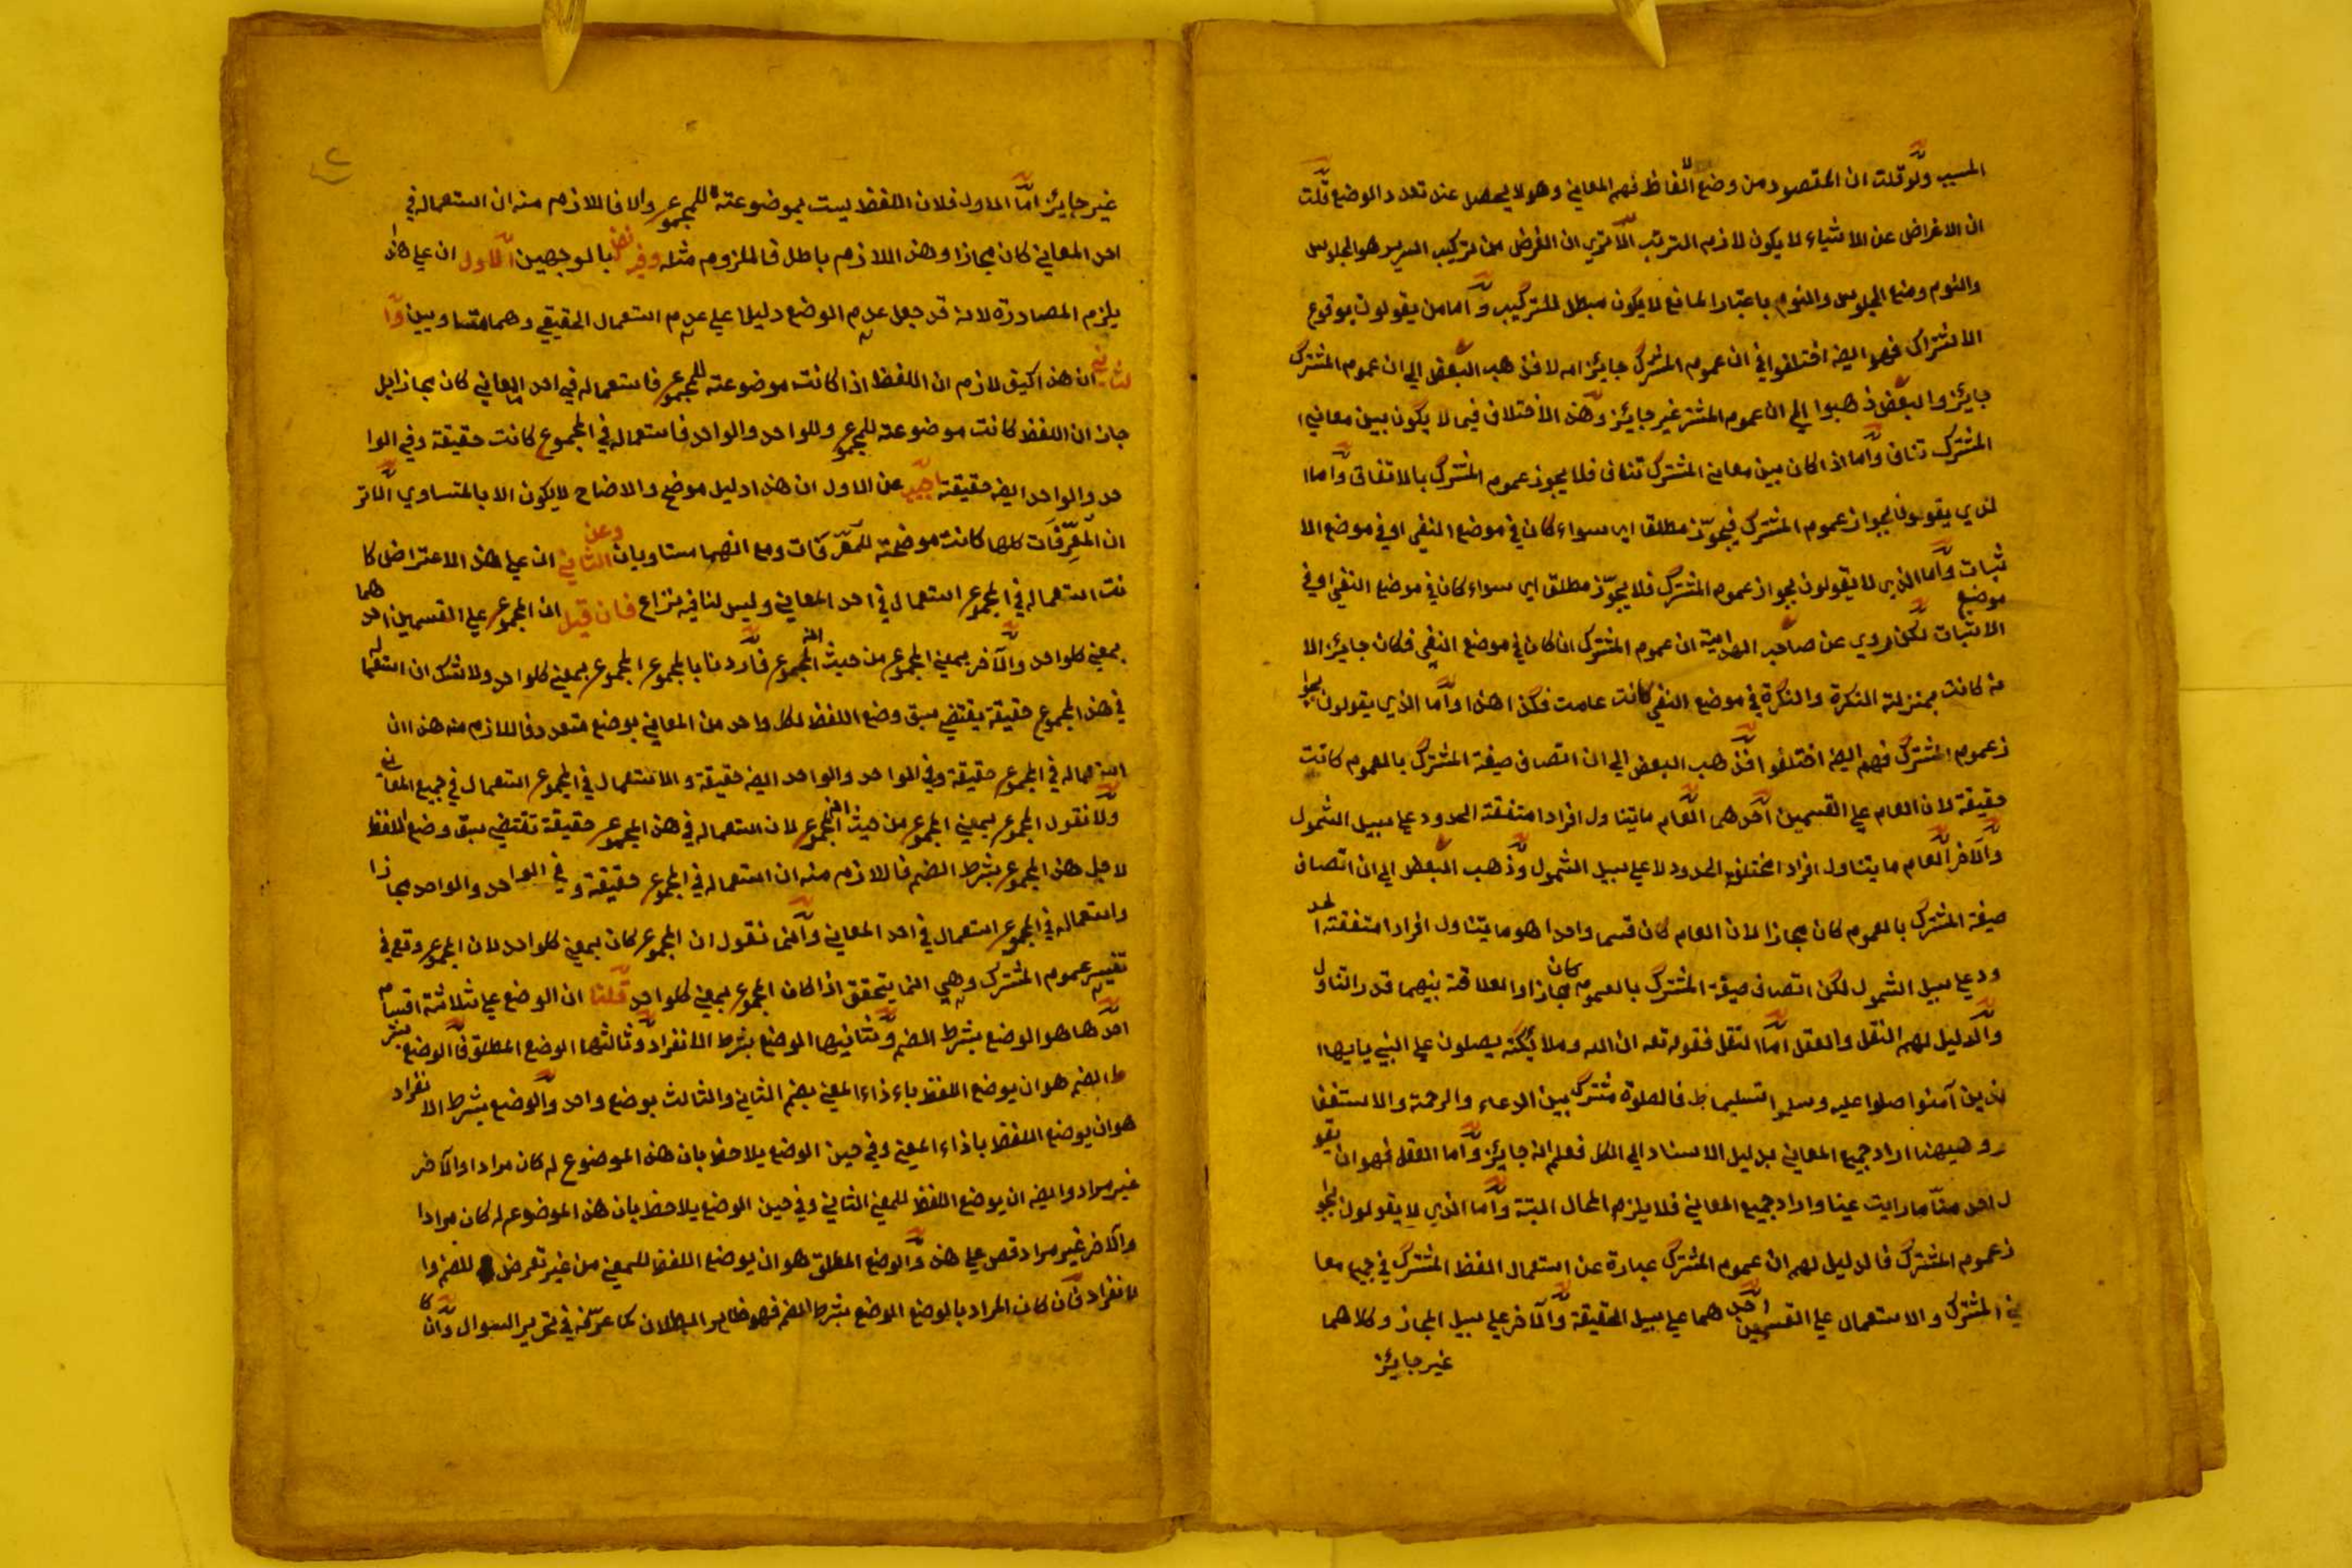 المسبب ولو قلت ان المقصود من وضع الالفاظ فهم المعاني وهو لا يحصل عند تعدد الوضع قلت
ان الاغراض عن الاشياء لا يكون لازم الترتب الا تري ان الغرض من تركيب السرير هو الجلوس
والنوم ومنع الجلوس والنوم باعتبار المانع لا يكون مبطل للتركيب واما من يقولون بوقوع
الاشتراك فهو ايضه اختلفوا في ان عموم المشترك جايز ام لا فذهب البعض الي ان عموم المشترك
جايز والبعض ذهبوا الي ان عموم المشتر غير جايز وهذه الاختلاف فيما لا يكون بين معاني ا
المشترك تنافي واما اذا كان بين معاني المشترك تنافي فلا يجوز عموم المشترك بالاتفاق واما ا
لذي يقولون بجواز عموم المشترك فيجوّز مطلقا اي سواء كان في موضع النفي او في موضع الا
ثبات واما الذي لا يقولون بجواز عموم المشترك فلا يجوّز مطلقا اي سواء كان في موضع النفي او في موضع
الاثبات لكن روي عن صاحب الهداية ان عموم المشترك ان كان في موضع النفي فكان جايز الا
نه كانت بمنزلة النكرة والنكرة في موضع النفي كانت عامت فكذا هذا واما الذي يقولون بجوا
ز عموم المشترك فهم ايضه اختلفوا فذهب البعض الي ان اتصاف صيغة المشترك بالعموم كانت
حقيقة لان العام علي القسمين احدهما العام ما يتناول افرادا متفقة الحدود علي سبيل الشمول
والآخر العام ما يتناول افراد مختلف الحدود لا علي سبيل الشمول وذهب البعض الي ان اتصاف
صيغة المشترك بالعموم كان مجازا لان العام كان قسما واحدا هو ما يتناول افرادا متفقته الحد
ود علي سبيل الشمول لكن اتصاف صيغة المشترك بالعموم كان مجازا والعلاقة بينهما قدر التناول
والدليل لهم النقل والعقل اما النقل فقوله تعه ان الله وملائكته يصلون علي النبي يا يها ا
لذين آمنوا صلوا عليه وسلموا تسليما ط فالصلوة مشترك بين الدعاء والرحمة والاستغفا
ر وههنا اراد جميع المعاني بدليل الاسناد الي الكل فعلم انه جايز واما العقل فهو ان يقو
ل احد منّا ما رايت عينا واراد جميع المعاني فلا يلزم المحال البتة واما الذي لا يقولون بجوا
ز عموم المشترك فالدليل لهم ان عموم المشترك عبارة عن استعمال اللفظ المشترك في جميع معا
ني المشترك والاستعمال علي القسمين احدهما علي سبيل الحقيقة والآخر علي سبيل المجاز وكلاهما
غير جايز
٢
غير جايز اما الاول فلان اللفظ ليست بموضوعته للمجموع والا فاللازم منه ان استعماله في
احد المعاني كان مجازا وهذه اللازم باطل فالملزوم مثله وفيه نظر بالوجهين الاول ان علي هذا
يلزم المصادرة لانه قد جعل عدم الوضع دليلا علي عدم استعمال الحقيقي وهما متساويين وا
لثاني ان هذا كيف لازم ان اللفظ اذا كانت موضوعته للمجموع فاستعماله في احد المعاني كان مجازا بل
جاز ان اللفظ كانت موضوعته للمجموع وللواحد والواحد فاستعماله في المجموع كانت حقيقة وفي الوا
حد والواحد ايضه حقيقته اجيب عن الاول ان هذا دليل موضح والايضاح لا يكون الا بالمتساوي الا تر
ان المعرِّفات كلها كانت موضحته للمعرَّفات ومع انهما متساويان وعن الثاني ان علي هذه الاعتراض كا
نت استعماله في المجموع استعمال في احد المعاني وليس لنا فيه نزاع فان قيل ان المجموع علي القسمين احدهما
بمعني كلواحد والآخر بمعني المجموع من حيث انه المجموع فاردنا بالمجموع المجموع بمعني كلواحد ولا شك ان استعماله
في هذه المجموع حقيقة يقتضي سبق وضع اللفظ لكل واحد من المعاني بوضع متعدد فاللازم منه هذا ان
استعماله في المجموع حقيقة وفي الواحد والواحد ايضه حقيقة والاستعمال في المجموع استعمال في جميع المعاني
ولا نقول المجموع بمعني المجموع من حيث انه المجموع لان استعماله في هذه المجموع حقيقة تقتضي سبق وضع اللفظ
لاجل هذه المجموع بشرط الضم فاللازم منه ان استعماله في المجموع حقيقة وفي الواحد والواحد مجازا
واستعماله في المجموع استعمال في احد المعاني وانما نقول ان المجموع كان بمعني كلواحد لان المجموع وقع في
تفسير عموم المشترك وهي انما يتحقق اذا كان المجموع بمعني كلواحد قلنا ان الوضع علي ثلاثة اقسام
احدها هو الوضع بشرط الضم وثانيها الوضع بشرط الانفراد وثالثها الوضع المطلق فالوضع بشر
ط الضم هو ان يوضع اللفظ باءذاء المعني بضم الثاني والثالث بوضع واحد والوضع بشرط الانفراد
هو ان يوضع اللفظ باذاء المعني وفي حين الوضع يلاحظ بان هذه الموضوع له كان مرادا والآخر
غير مراد وايضه ان يوضع اللفظ للمعني الثاني وفي حين الوضع يلاحظ بان هذه الموضوع له كان مرادا
والآخر غير مراد قس علي هذه والوضع المطلق هو ان يوضع اللفظ للمعني من غير تعرض للضم وا
لانفراد فان كان المراد بالوضع الوضع بشرط الضم فهو ظاهر البطلان كما عرّفته في تحرير السوال وان كا